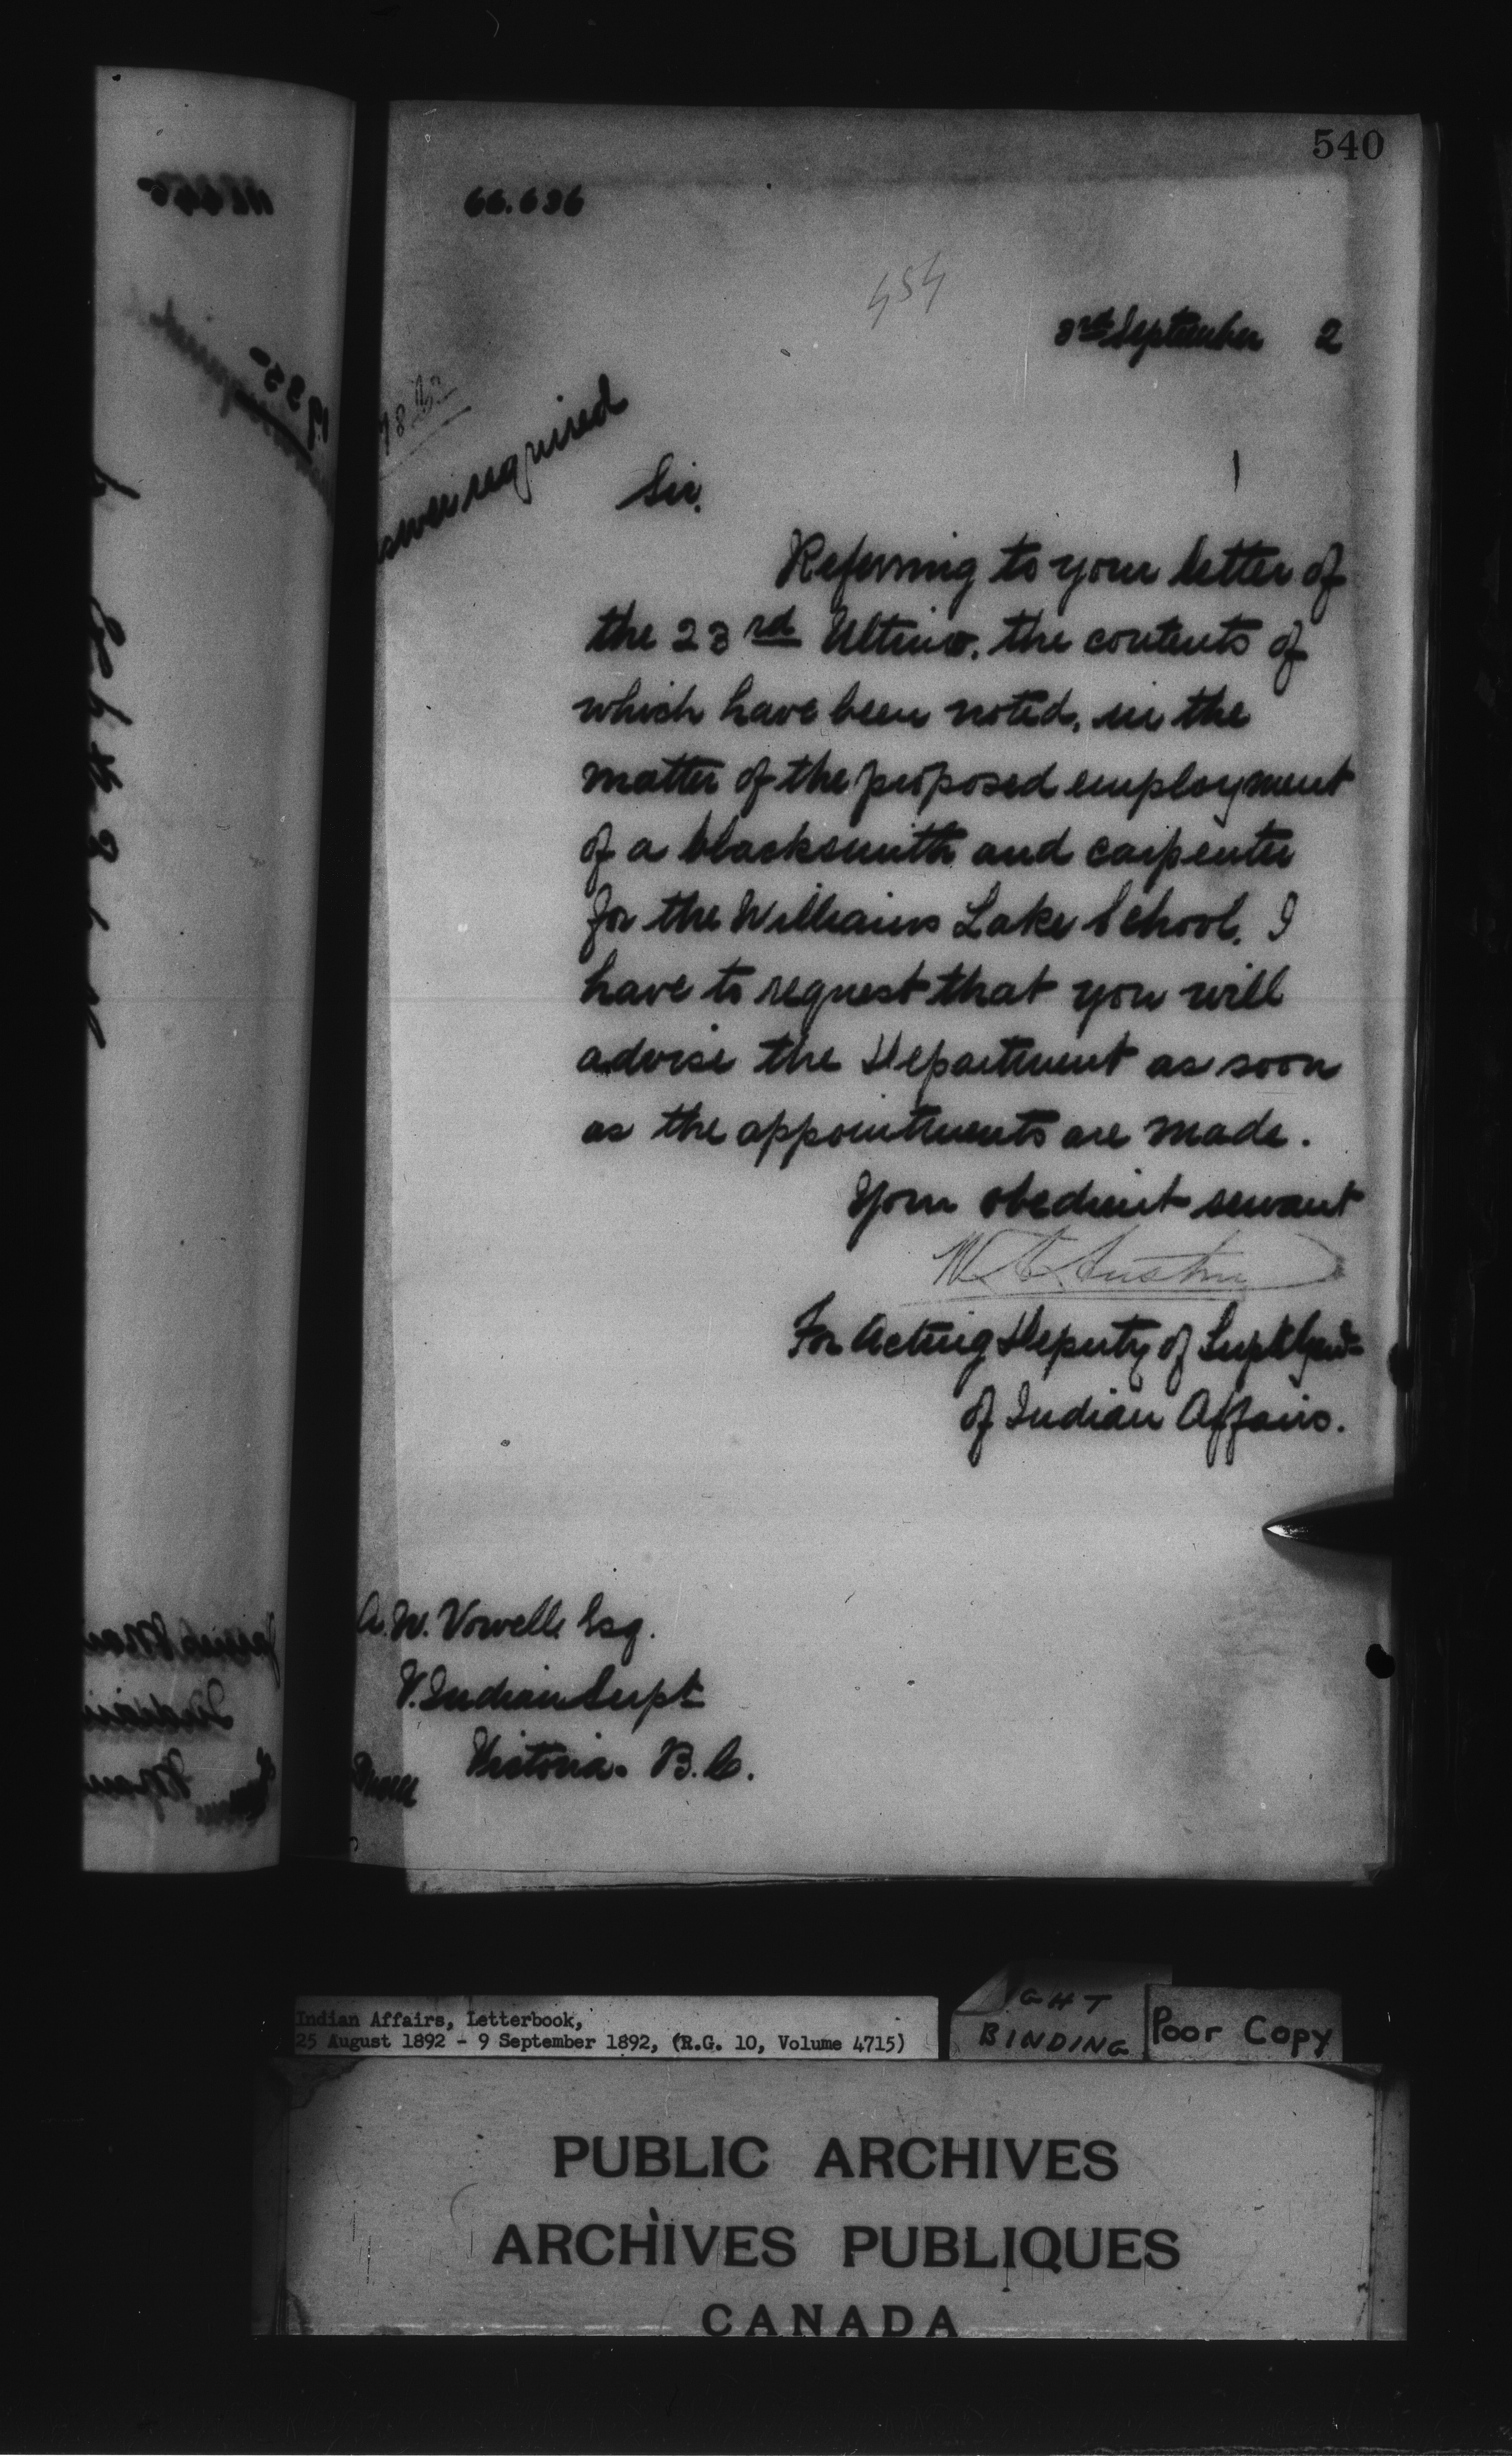 540
66.636
454
3rd September 2
swer required
Sir,
Referring to your letter of
the 23rd Ultimo, the contents of
which have been noted, in the
matter of the proposed employment
of a blacksmith and carpenter
for the Williams Lake School, I
have to request that you will
advise the Department as soon
as the appointments are made.
Your obedient servant
W A Austin
For Acting Deputy of Supt Genl
of Indian Affairs.
A. W. Vowell Esq.
V. Indian Supt
Victoria. B.C.
Indian Affairs, Letterbook,
25 August 1892 - 9 September 1892, (R.G. 10, Volume 4715)
GHT
BINDING
Poor Copy
PUBLIC ARCHIVES
ARCHIVES PUBLIQUES
CANADA